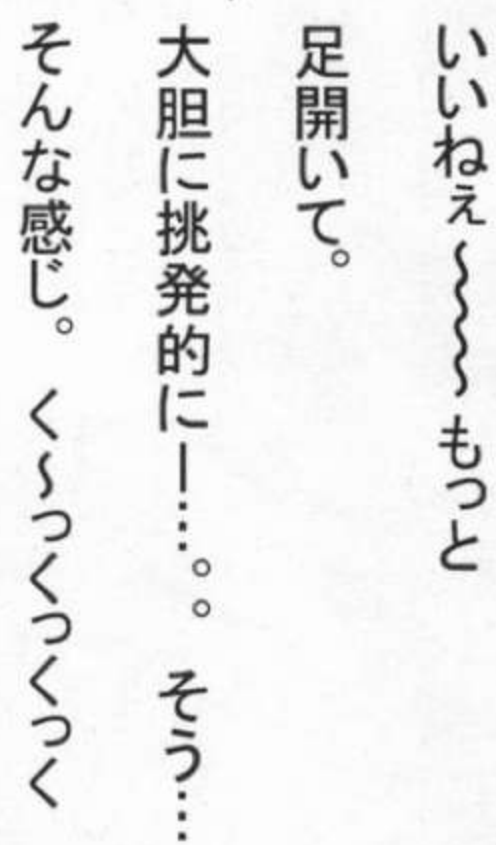 いいねぇ〜〜〜〜もっと
足開いて。
大胆に挑発的にー…。。　そう…
そんな感じ。　く〜っくっくっく